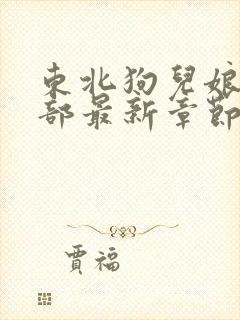 東北狗兒娘
部最新章節
賈福